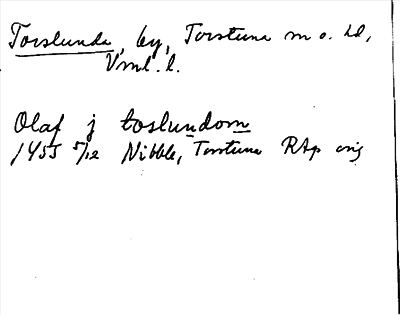 Torslunda, by, Torstuna sn o. hd,
Vml. l.
Olaf j toslundom
1455 5/12 Nibble, Torstuna RAp orig